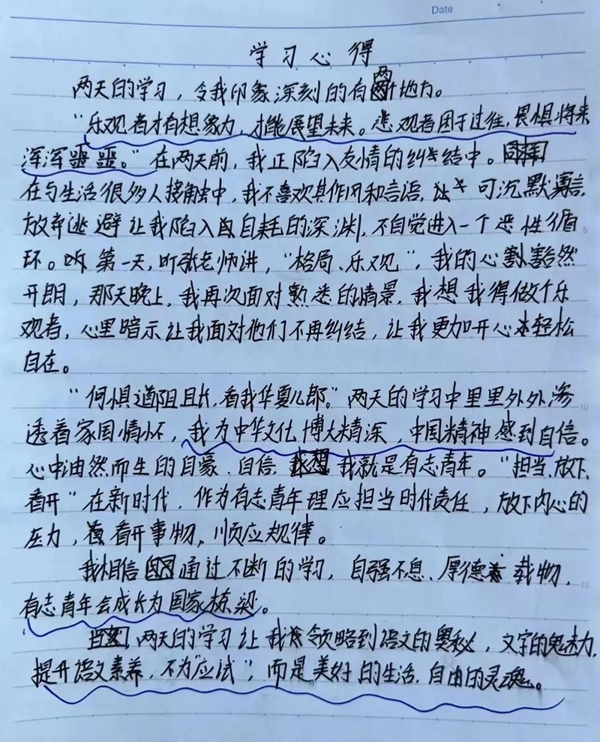 Date
学习心得
两天的学习，令我印象深刻的有两个地方。
“乐观者才有想象力，才能展望未来。悲观者困于过往，畏惧将来
浑浑噩噩。”在两天前，我正陷入友情的纠结中。
在与生活很多人接触中，我不喜欢其作风和言语，可沉默寡言，
放弃逃避让我陷入自耗的深渊，不自觉进入一个恶性循
环。听第一天，听张老师讲，“格局、乐观”，我的心豁然
开朗，那天晚上，我再次面对熟悉的情景，我想我得做个乐
观者，心里暗示让我面对他们不再纠结，让我更加开心轻松
自在。
“何惧道阻且长，看我华夏儿郎。”两天的学习中里里外外渗
透着家国情怀，我为中华文化博大精深，中国精神感到自信。
心中油然而生的自豪、自信，我就是有志青年。“担当、放下、
看开”在新时代，作为有志青年理应担当时代责任，放下内心的
压力，看开事物，顺应规律。
我相信通过不断的学习，自强不息、厚德载物，
有志青年会成长为国家栋梁。
两天的学习让我领略到语文的奥秘，文字的魅力，
提升语文素养，不为“应试”，而是美好的生活，自由的灵魂。